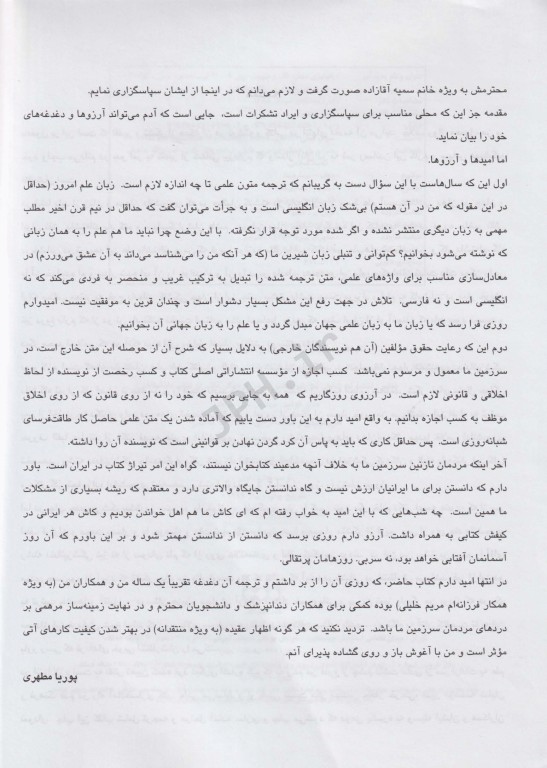 محترمش به ویژه خانم سمیه آقازاده صورت گرفت و لازم می‌دانم که در اینجا از ایشان سپاسگزاری نمایم.
مقدمه جز این که محلی مناسب برای سپاسگزاری و ایراد تشکرات است، جایی است که آدم می‌تواند آرزوها و دغدغه‌های
خود را بیان نماید.
اما امیدها و آرزوها.
اول این که سال‌هاست با این سؤال دست به گریبانم که ترجمه متون علمی تا چه اندازه لازم است. زبان علم امروز (حداقل
در این مقوله که من در آن هستم) بی‌شک زبان انگلیسی است و به جرأت می‌توان گفت که حداقل در نیم قرن اخیر مطلب
مهمی به زبان دیگری منتشر نشده و اگر شده مورد توجه قرار نگرفته. با این وضع چرا نباید ما هم علم را به همان زبانی
که نوشته می‌شود بخوانیم؟ کم‌توانی و تنبلی زبان شیرین ما (که هر آنکه من را می‌شناسد می‌داند به آن عشق می‌ورزم) در
معادل‌سازی مناسب برای واژه‌های علمی، متن ترجمه شده را تبدیل به ترکیب غریب و منحصر به فردی می‌کند که نه
انگلیسی است و نه فارسی. تلاش در جهت رفع این مشکل بسیار دشوار است و چندان قرین به موفقیت نیست. امیدوارم
روزی فرا رسد که یا زبان ما به زبان علمی جهان مبدل گردد و یا علم را به زبان جهانی آن بخوانیم.
دوم این که رعایت حقوق مؤلفین (آن هم نویسندگان خارجی) به دلایل بسیار که شرح آن از حوصله این متن خارج است، در
سرزمین ما معمول و مرسوم نمی‌باشد. کسب اجازه از مؤسسه انتشاراتی اصلی کتاب و کسب رخصت از نویسنده از لحاظ
اخلاقی و قانونی لازم است. در آرزوی روزگاریم که همه به جایی برسیم که خود را نه از روی قانون که از روی اخلاق
موظف به کسب اجازه بدانیم. به واقع امید دارم به این باور دست یابیم که آماده شدن یک متن علمی حاصل کار طاقت‌فرسای
شبانه‌روزی است. پس حداقل کاری که باید به پاس آن کرد گردن نهادن بر قوانینی است که نویسنده آن روا داشته.
آخر اینکه مردمان نازنین سرزمین ما به خلاف آنچه مدعیند کتابخوان نیستند، گواه این امر تیراژ کتاب در ایران است. باور
دارم که دانستن برای ما ایرانیان ارزش نیست و گاه ندانستن جایگاه والاتری دارد و معتقدم که ریشه بسیاری از مشکلات
ما همین است. چه شب‌هایی که با این امید به خواب رفته ام که ای کاش ما هم اهل خواندن بودیم و کاش هر ایرانی در
کیفش کتابی به همراه داشت. آرزو دارم روزی برسد که دانستن از ندانستن مهمتر شود و بر این باورم که آن روز
آسمانمان آفتابی خواهد بود، نه سربی. روزهامان پرتقالی.
در انتها امید دارم کتاب حاضر، که روزی آن را از بر داشتم و ترجمه آن دغدغه تقریباً یک ساله من و همکاران من (به ویژه
همکار فرزانه‌ام مریم خلیلی) بوده کمکی برای همکاران دندانپزشک و دانشجویان محترم و در نهایت زمینه‌ساز مرهمی بر
دردهای مردمان سرزمین ما باشد. تردید نکنید که هر گونه اظهار عقیده (به ویژه منتقدانه) در بهتر شدن کیفیت کارهای آتی
مؤثر است و من با آغوش باز و روی گشاده پذیرای آنم.
پوریا مطهری
3PH.ir